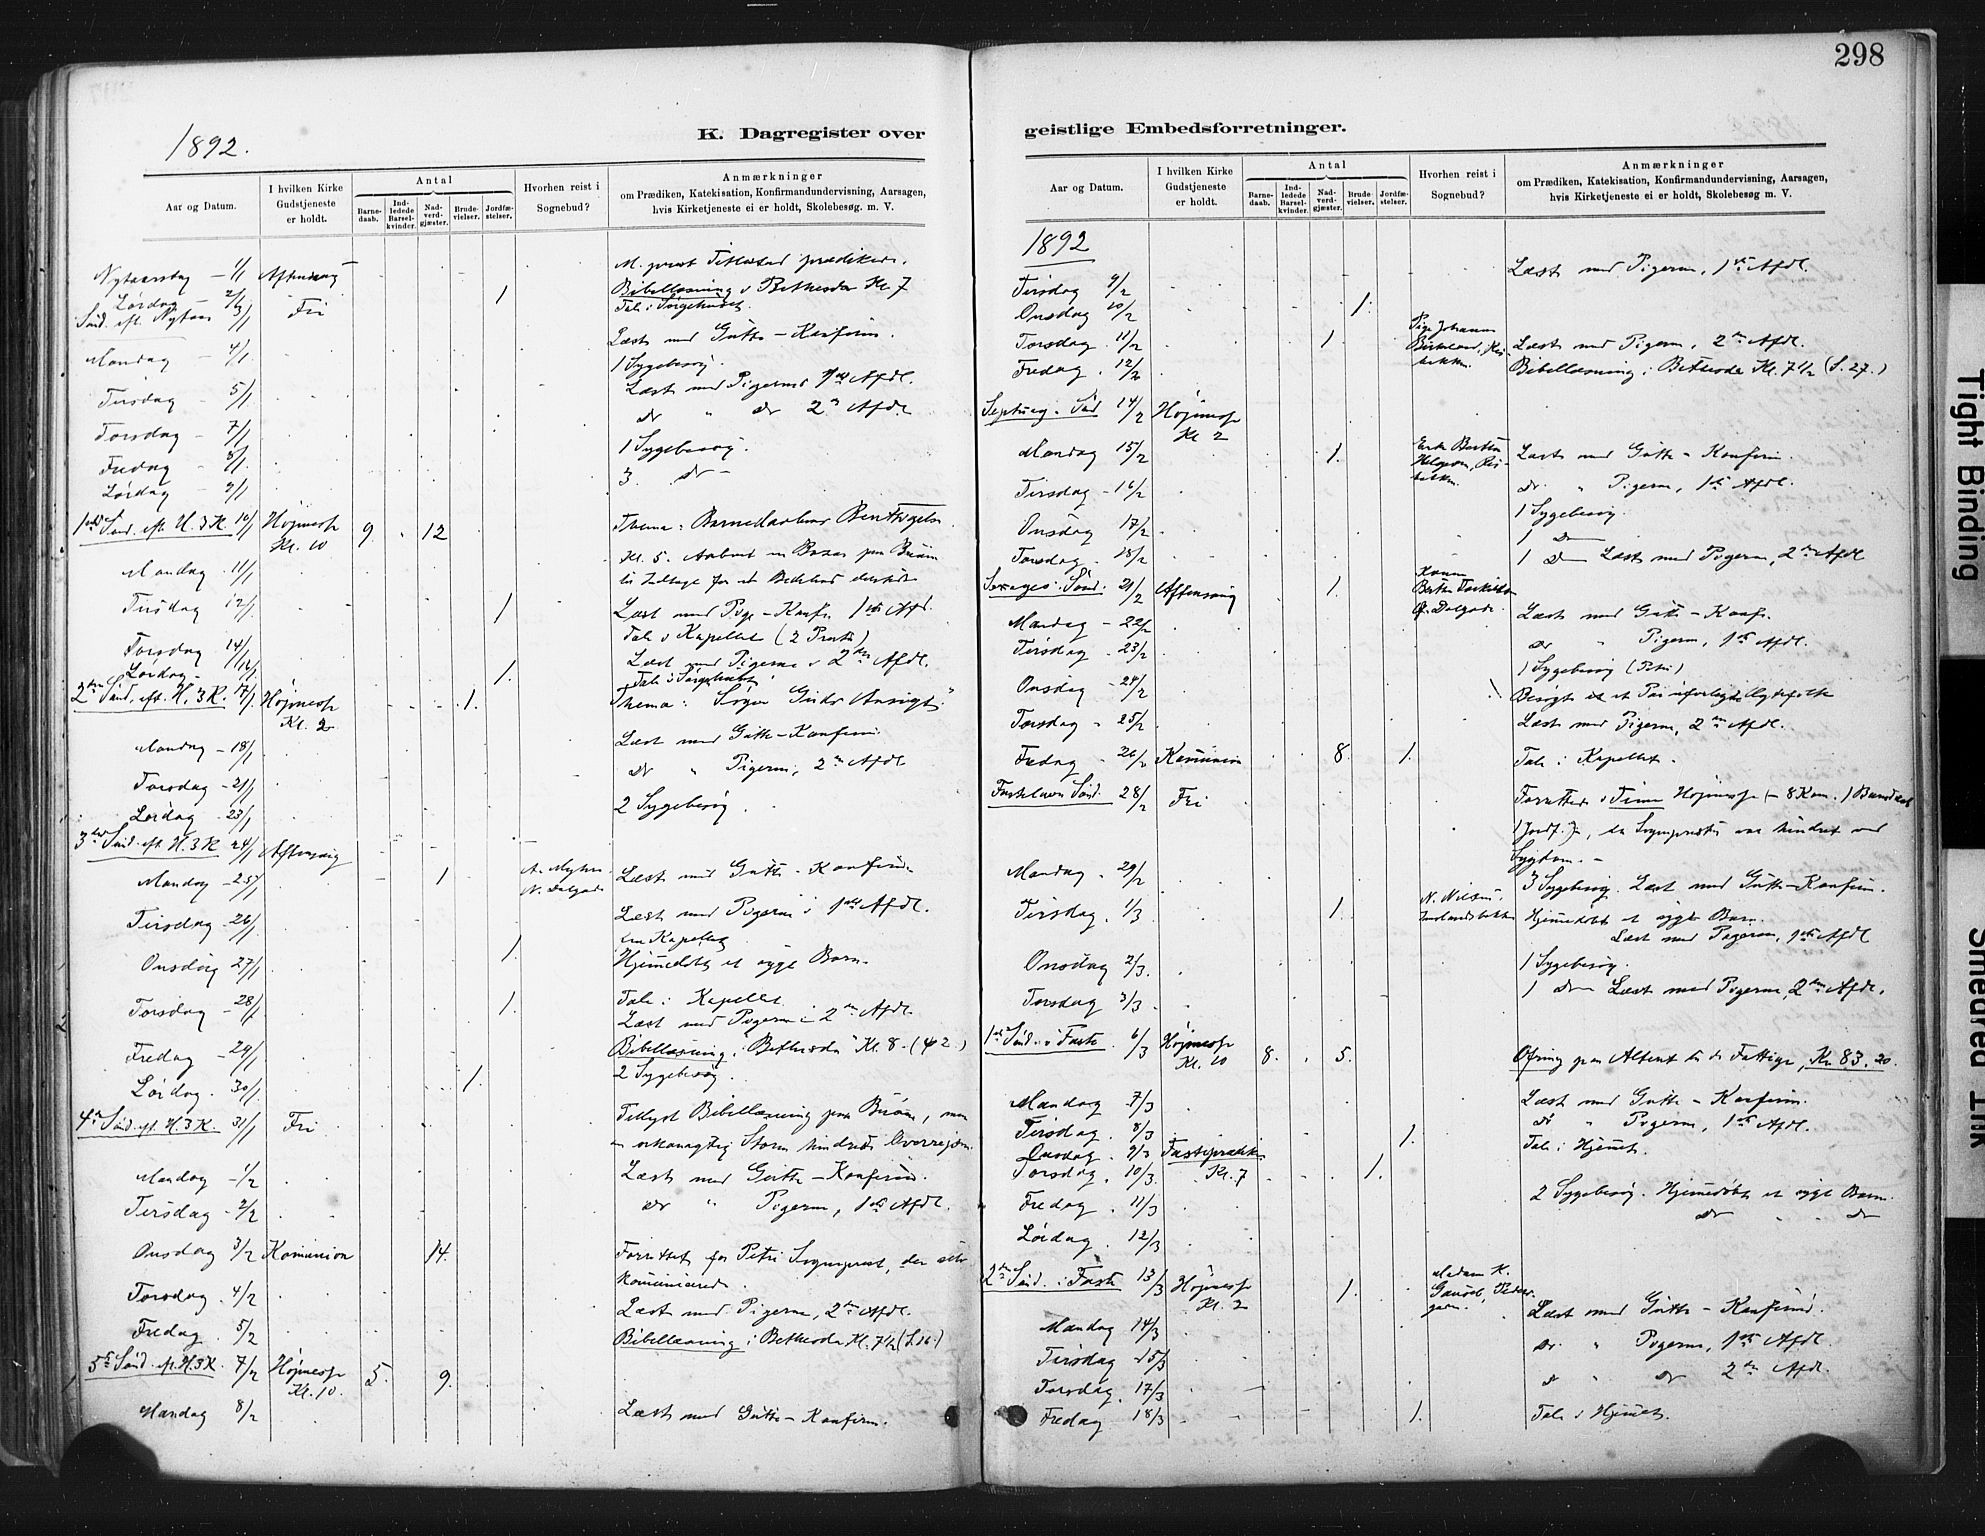 298
1892.
K. Dagregister over
geistlige Embedsforretninger.
Aar og Datum.
I hvilken Kirke Gudstjeneste er holdt.
Antal
Barnedaab.
Indledede Barselkvinder.
Nadverdgjæster.
Brudevielser.
Jordfæstelser.
Hvorhen reist i Sognebud?
Anmærkninger
om Prædiken, Katekisation, Konfirmandundervisning, Aarsagen,
hvis Kirketjeneste ei er holdt, Skolebesøg. m. V.
Nytaarsdag - 1/1 Aftensang
Lørdag - 2/1 1 Bibellæsning i Bethesda Kl. 7
Sønd. eft. Nytaar 3/1 Fri Tale i Sørgehuset
Mandag - 4/1 Læst med Gutte-Konfirm.
1 Sygebesøg.
Tirsdag - 5/1 Læst med Pigerne 1ste Afdl.
Torsdag - 7/1 do " do 2den Afdl.
Fredag - 8/1 1 Sygebesøg.
Lørdag - 9/1 3 do -
1ste Sønd. eft. H. 3 K. 10/1 Højmesse Kl. 10 9. 12 Thema:
Mandag 11/1 Kl. 5.
Tirsdag 12/1 1 Læst med Pige-Konfr. 1ste Afd.
Tale i Kapellet (2
Torsdag 14/1 Læst med Pigerne i 2den Afdl.
Lørdag - 1. Tale i Sørgehuset
2den Sønd. eft. H. 3 K. 17/1 Højmesse Kl. 2 1. Thema: Søger Guds Ansigt.
Mandag - 18/1 Læst med Gutte-Konfirm.
Torsdag - 21/1 do " Pigerne, 2den Afdl.
Lørdag - 23/1 2 Sygebesøg
3die Sønd. eft. H. 3 K 24/1 Aftensang
Mandag - 25/1 1 Læst med Gutte-Konfirm.
Tirsdag - 26/1 Læst med Pigerne i 1ste Afdl.
Kapellet
Onsdag 27/1 1 Hjemmedøbt et sygt Barn.
Torsdag - 28/1 1. Tale i Kapellet
Læst med Pigerne i 2den Afdl.
Fredag - 29/1 Bibellæsning i Bethesda Kl. 8. (42.)
Lørdag. 30/1 1. 2 Sygebesøg.
4de Sønd. eft. H. 3 K. 31/1 Fri Tillyst Bibellæsning paa Buøen, men
en orkanagtig Storm hindrede Overreisen.
Mandag - 1/2 Læst med Gutte-Konfirm.
Tirsdag - 2/2 do " Pigerne, 1ste Afdl.
Onsdag 3/2 Komunion 14. Forrettet for Petri Sogneprest, der selv
komunicerede.
Torsdag. 4/2 Læst med Pigerne, 2den Afdl.
Fredag. 5/2 Bibellæsning i Bethesda Kl. 7½ (S.16.)
5te Sønd. eft. H. 3 K. 7/2 Højmesse Kl. 10. 5. 9.
Mandag 8/2 Læst med Gutte-Konfirm.
Aar og Datum.
I hvilken Kirke Gudstjeneste er holdt.
Antal
Barnedaab.
Indledede Barselkvinder.
Nadverdgjæster.
Brudevielser.
Jordfæstelser.
Hvorhen reist i Sognebud?
Anmærkninger
om Prædiken, Katekisation, Konfirmandundervisning, Aarsagen,
hvis Kirketjeneste ei er holdt, Skolebesøg m. V.
1892
Tirsdag 9/2 Læst med Pigerne, 1ste Afdl.
Onsdag 10/2 1.
Torsdag 11/2 1 Pige Johanne Læst med Pigerne, 2den Afdl.
Fredag. 12/2 Bibellæsning i Bethesda Kl. 7½ (S. 27.)
Septuag. Sønd 14/2 Højmesse Kl 2
Mandag 15/2 1. Læst med Gutte-Konfirm.
Tirsdag - 16/2 do. " Pigerne, 1ste Afdl.
Onsdag 17/2 1 Sygebesøg.
1 do
Torsdag. 18/2 1 do Læst med Pigerne, 2den Afdl
Sexages. Sønd. 21/2 Aftensang 1. Kone
Mandag - 22/2 Læst med Gutte-Konfr.
Tirsdag - 23/2 do " Pigerne, 1ste Afdl.
Onsdag - 24/2 1 Sygebesøg (Petri)
Besøgt et Par uforligte Ægtefolk
Torsdag - 25/2 Læst med Pigerne, 2den Afdl.
Fredag 26/2 Komunion 8. 1. Tale i Kapellet.
Fastelavns Sønd. 28/2 Fri Forretted i Højmesse (- 8 Kom. 1 Barnedaab
1 Jordf.), da Sognepresten var hindret ved
Sygdom. -
Mandag. 29/2 3 Sygebesøg. Læst med Gutte-Konfirm.
Tirsdag. 1/3 1. N. Nielsen, Hjemmedøbt et sygt Barn.
Læst med Pigerne, 1ste Afdl
Onsdag 2/3. 1 Sygebesøg.
Torsdag 3/3. 1 do Læst med Pigerne, 2den Afdl.
1ste Sønd. i Faste. 6/3 Højmesse Kl. 10 8. 5. Ofring paa Alteret til de Fattige, Kr 83.20.
Mandag 7/3 Læst med Gutte-Konfirm.
Tirsdag. 8/3 1. do " Pigerne, 1ste Afdl.
Onsdag. 9/3 Fasteprædik. Kl. 7 Tale i Hjemmet.
Torsdag. 10/3. 1.
Fredag. 11/3 2 Sygebesøg. Hjemmedøbt et sygt Barn.
Lørdag. 12/3 do do
2den Sønd. i Faste 13/3 Højmesse Kl. 2 1. Madam K.
Mandag 14/3 Læst med Gutte-Konfirm.
Tirsdag 15/3 do. " Pigerne, 1ste Afdl.
Torsdag. 17/3 do " do 2den Afdl.
Fredag. 18/3 1. Tale i Hjemmet.
Tight Binding
Smeared Ink